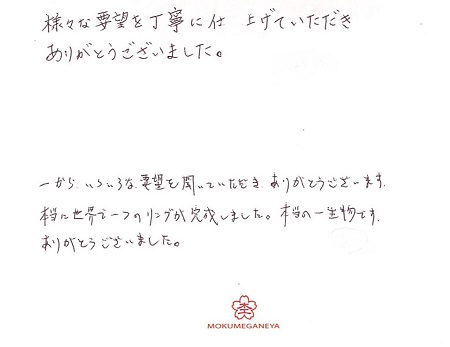 様々な要望を丁寧に仕上げていただき
ありがとうございました。
一から、いろいろな要望を聞いていただき、ありがとうございます。
本当に世界で一つのリングが完成しました。本当の一生物です。
ありがとうございました。
MOKUMEGANEYA